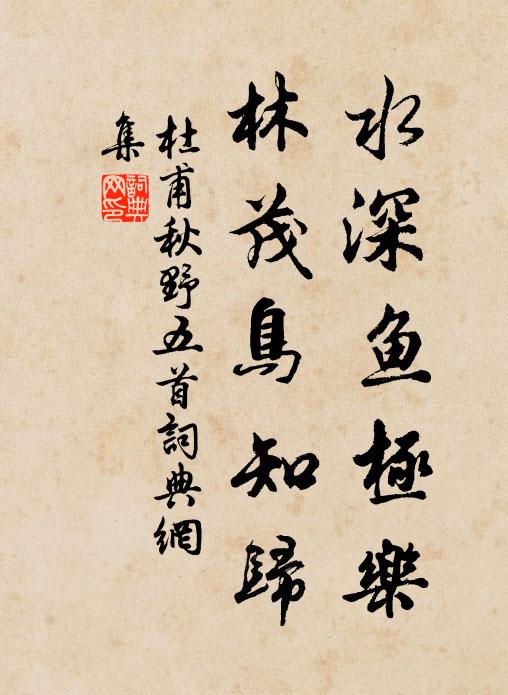 水深鱼極樂
林茂鳥知歸
杜甫秋野五首詞典網
集
詞典
网印